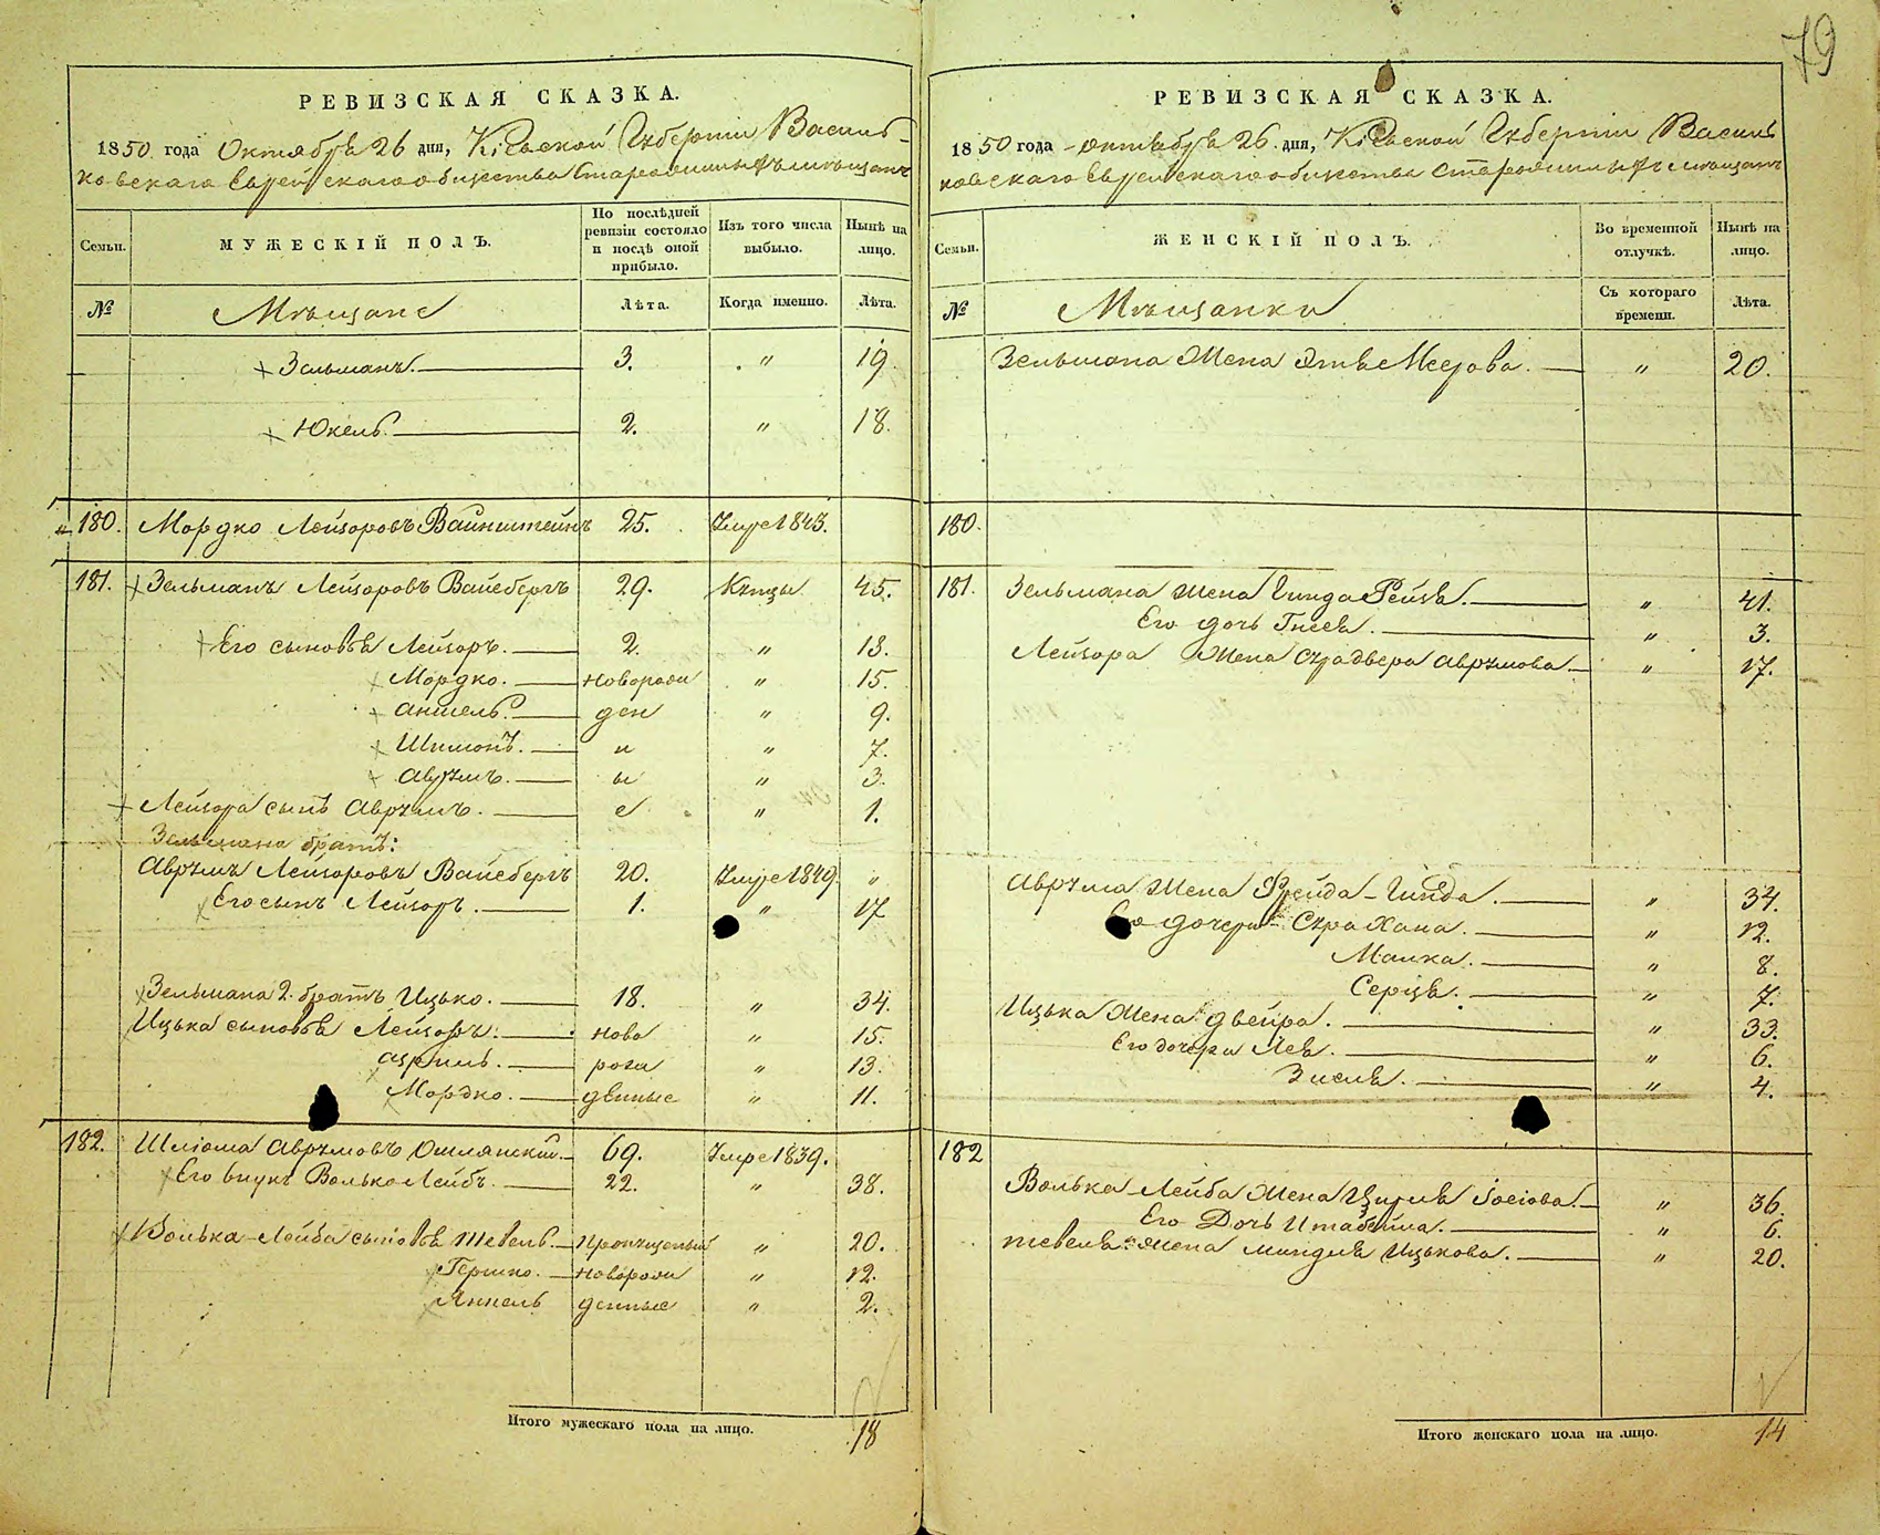 79
РЕВИЗСКАЯ СКАЗКА.
1850 года Октября 26 дня, Кіевской Губерніи Василь-
ковскаго Еврейскаго общества Старожиныхъ мѣщанъ
Семьи.
МУЖЕСКІЙ ПОЛЪ.
По послѣдней ревизіи состояло и послѣ оной прибыло.
Изъ того числа выбыло.
Нынѣ на лицо.
№
Мѣщане
Лѣта.
Когда именно.
Лѣта.
Зельманъ. 3. " 19
Юкель. 2. " 18.
180. Мордко Лейзоровъ Вайнштейнъ 25. Умре 1843.
181. Зельманъ Лейзоровъ Вайсбергъ 29. 45.
Его сыновья Лейзоръ. 2. " 18.
Мордко. новорож " 15.
Аншель. ден " 9.
Шимонъ. н " 7.
Аврумъ. ы " 3.
Лейзора сынъ Аврумъ. е " 1.
Зельмана братъ:
Аврумъ Лейзоровъ Вайсбергъ 20. Умре 1849. "
Его сынъ Лейзоръ. 1. " 17
Зельмана 2. братъ Ицько. 18. " 34.
Ицька сыновья Лейзоръ. ново " 15.
Сруль. рож " 13.
Мордко. денные " 11.
182. Шліома Аврумовъ Ошлянскій. 69. Умре 1839.
Его внукъ Волько Лейбъ. 22. " 38.
Волька-Лейба сыновья Тевель. пропущеный " 20.
Гершко. новорож " 12.
Янкель денные " 2.
Итого мужескаго пола на лицо. 18
РЕВИЗСКАЯ СКАЗКА.
1850 года Октября 26 дня, Кіевской Губерніи Василь
ковскаго Еврейскаго общества Старожиныхъ мѣщанъ
Семьи.
ЖЕНСКІЙ ПОЛЪ.
Во временной отлучкѣ.
Нынѣ на лицо.
№
Мѣщанки
Съ котораго времени.
Лѣта.
Зельмана Жена Этя Меерова. " 20.
180.
181. Зельмана жена Гинда Рейзя. " 41.
Его дочь Гнеся. " 3.
Лейзора Жена Сура Двера Аврумова. " 17.
Аврума Жена Фрейда-Гинда. " 34.
Его дочери Сура Хана. " 12.
Малка. " 8.
Серізя. " 7.
Ицька Жена Двейра. " 33.
Его дочери Лея. " 6.
Зисля. " 4.
182
Волька-Лейба Жена Цирля Іосіова. " 36.
Его Дочь Итабейла. " 6.
Тевеля Жена Миндля Ицькова. " 20.
Итого женскаго пола на лицо. 14